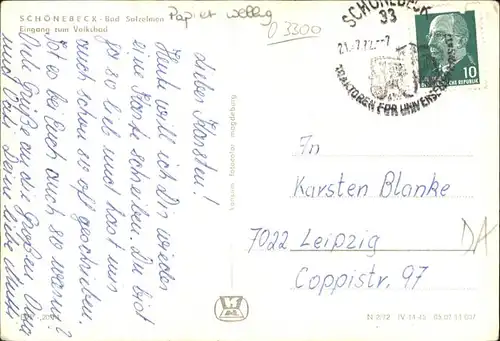 SCHÖNEBECK - Bad Salzelmen
Eingang zum Volksbad
Papier wellig
03300
SCHÖNEBECK
33
21.-7.72.-7
TRAKTOREN FÜR UNIVERSELLEN
10
DEUTSCHE DEMOKRATISCHE REPUBLIK
Lieber Karsten!
Heute will ich Dir wieder
eine Karte schreiben. Du bist
ja so lieb und hast uns
auch schon so oft geschrieben.
Ist es bei Euch auch so warm?
Viele Grüße an die Großen Oma
und Opa! Deine liebe Mutti
konsum fotocolor magdeburg
An
Karsten Blanke
7022 Leipzig
Coppistr. 97
DA
N 2/72 IV-14-45 05 07 11 007